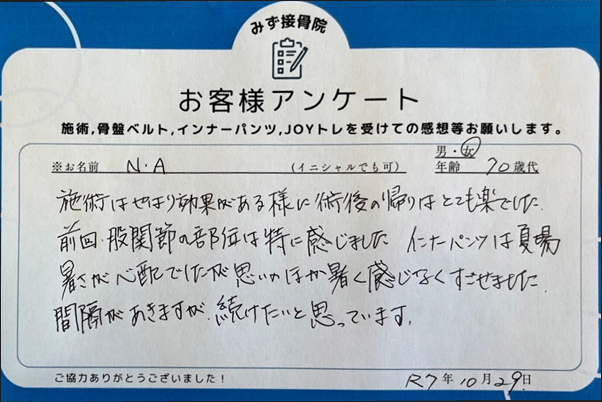 みず接骨院
お客様アンケート
施術,骨盤ベルト,インナーパンツ,JOYトレを受けての感想等お願いします。
男・女
※お名前 N.A (イニシャルでも可) 年齢 70歳代
施術はやはり効果がある様に術後の帰りはとても楽でした.
前回.股関節の部位は特に感じました インナーパンツは夏場
暑さが心配でしたが思いのほか暑く感じなくすごせました.
間隔があきますが.続けたいと思っています.
ご協力ありがとうございました! R7年10月29日